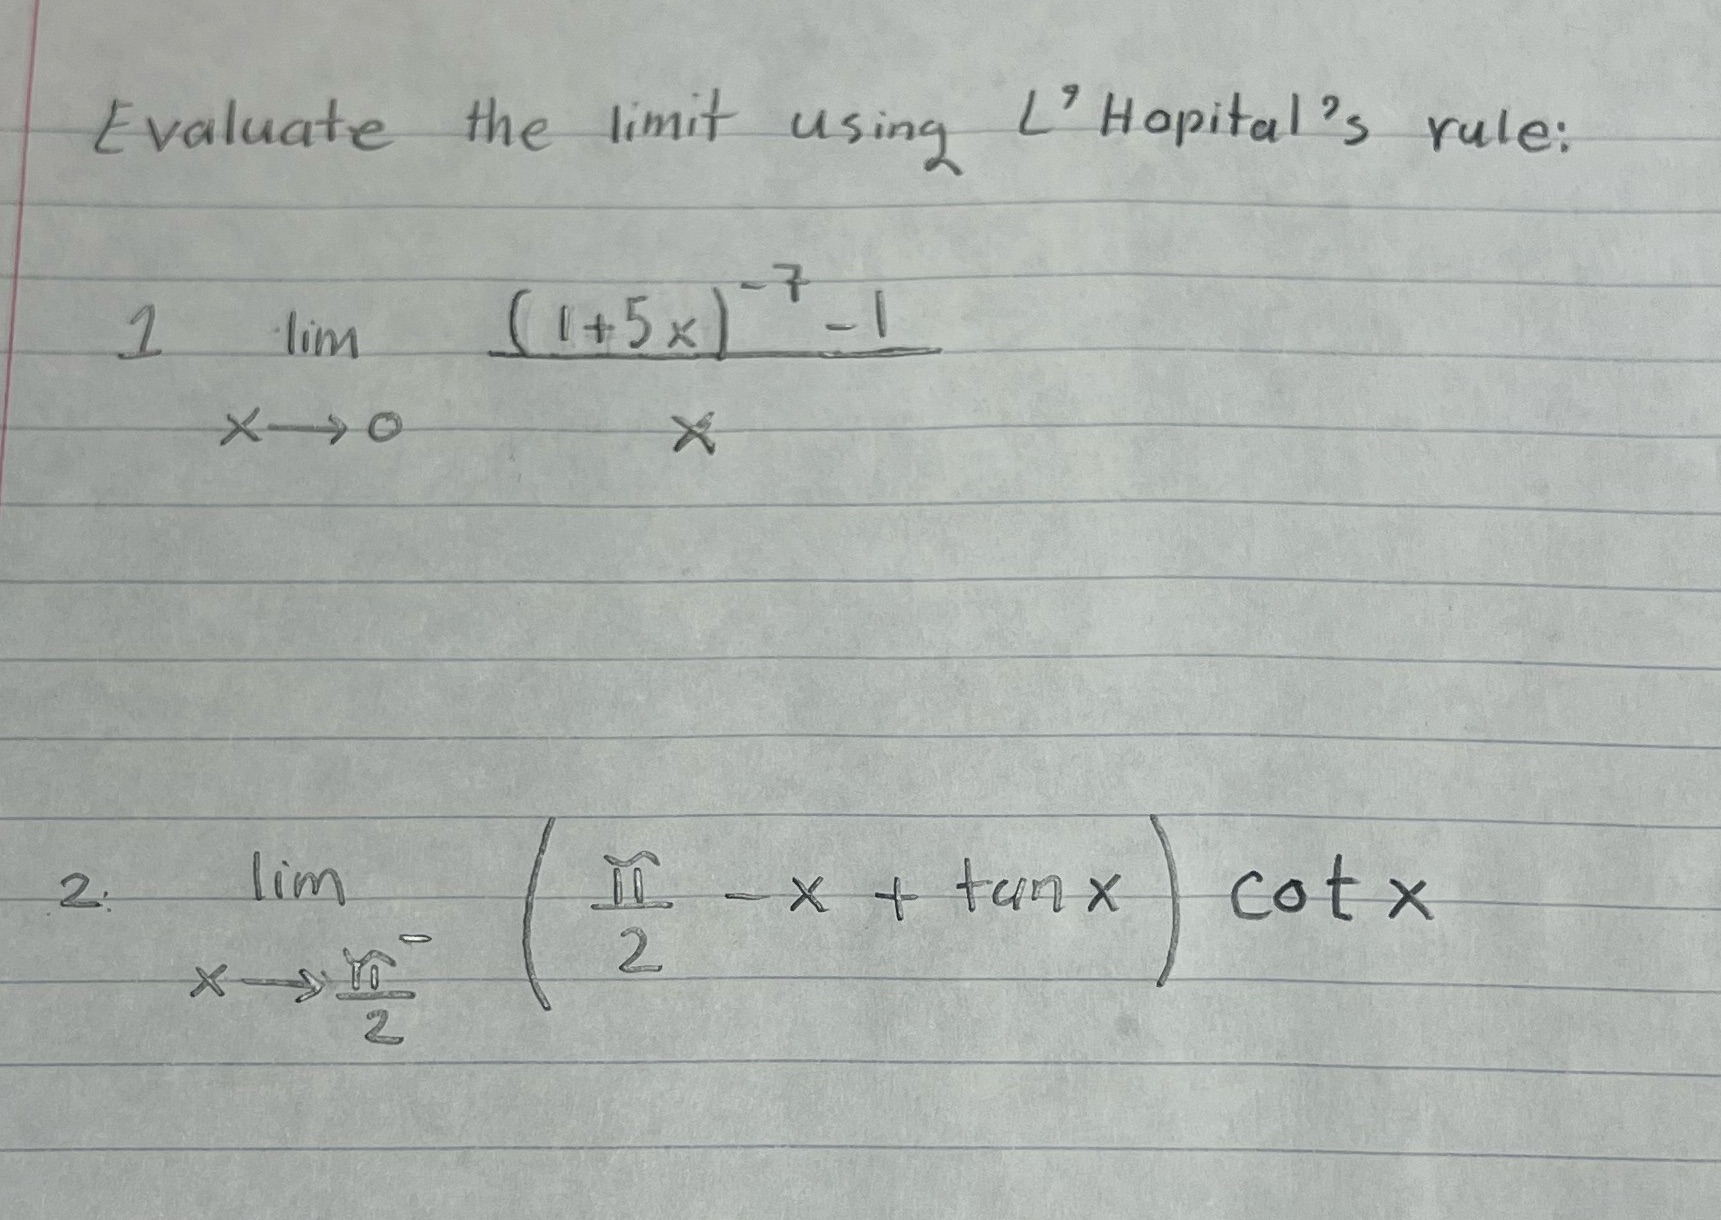 Evaluate the limit using L'Hopital's rule:
1 lim x→0 ((1+5x)^-7 - 1)/x
2. lim x→π/2^- (π/2 - x + tan x) cot x